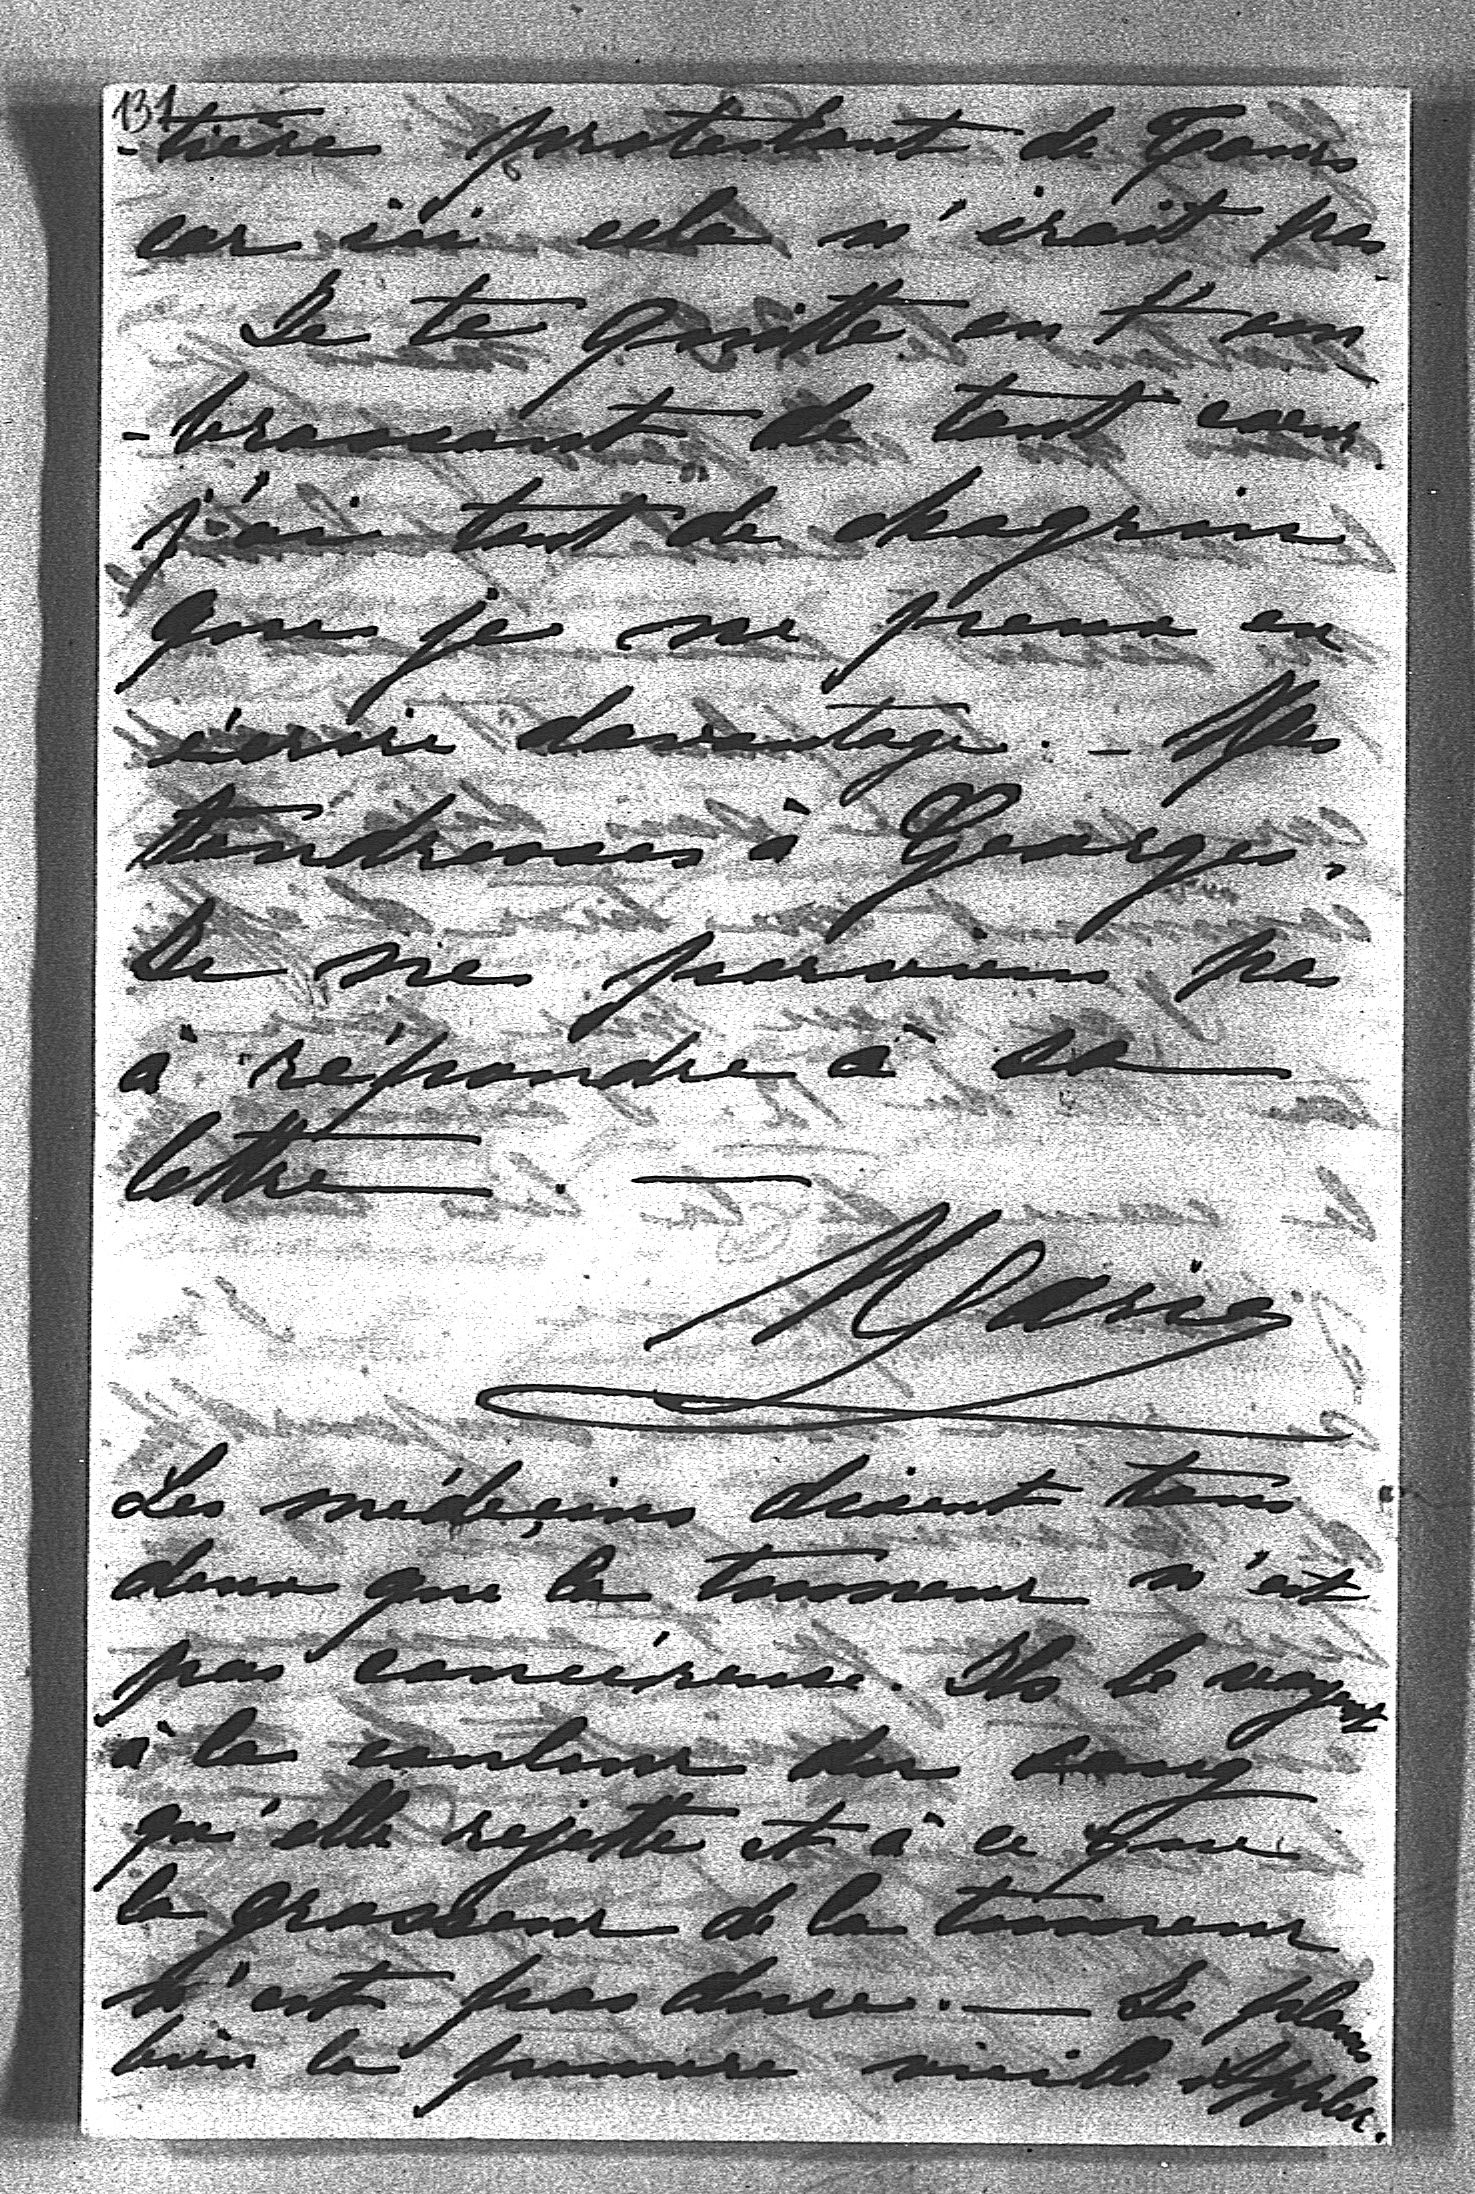 131
-tière protestant de Tours
car ici cela n'irait pas.
Je te quitte en t'em
-brassant de tout cœur.
j'ai tant de chagrin
que je ne peux en
écrire davantage. - Mes
tendresses à Georges.
Je ne parviens pas
à répondre à sa
lettre. —
Marie
Les médecins disent tous
deux que la tumeur n'est
pas cancéreuse. Ils le voyent
à la couleur du sang
qu'elle rejette et à ce que
la grosseur de la tumeur
n'est pas dure. — Je plains
bien la pauvre vieille